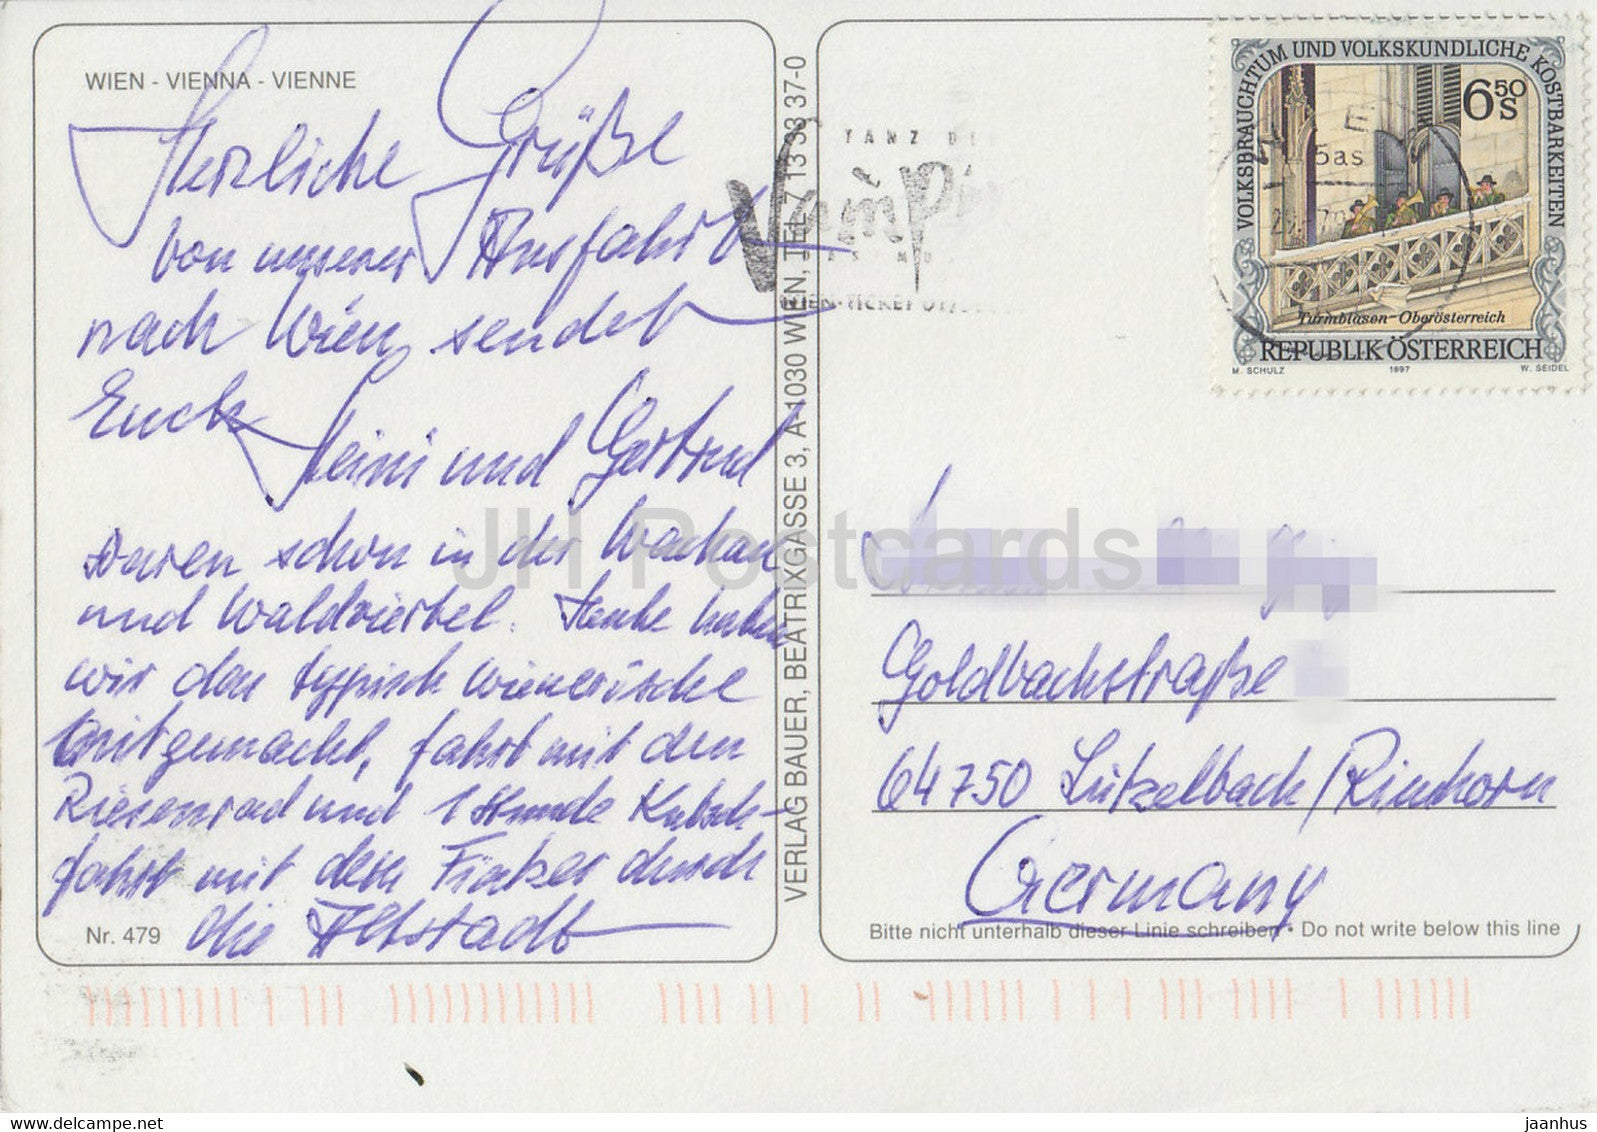 WIEN - VIENNA - VIENNE
Herzliche Grüße
von unserer Ausfahrt
nach Wien, sendet
Euch
Heini und Gertrud
waren schon in der Wachau
und Waldviertel. Heute haben
wir den typisch wienerische
mitgemacht, fahrt mit den
Riesenrad und 1 Stunde Kutsch-
fahrt mit dem Fiaker durch
die Altstadt
Nr. 479
VERLAG BAUER, BEATRIXGASSE 3, A-1030 WIEN, TEL. 713 33 37-0
TANZ DE
Vampi
DAS MU
WIEN-TICKET
VOLKSBRAUCHTUM UND VOLKSKUNDLICHE KOSTBARKEITEN
6 50 S
5as
Turmblasen-Oberösterreich
REPUBLIK ÖSTERREICH
M. SCHULZ 1997 W. SEIDEL
JH Postcards
Goldbachstraße
64750 Lützelbach/Rimhorn
Germany
Bitte nicht unterhalb dieser Linie schreiben • Do not write below this line
www.delcampe.net
jaanhus